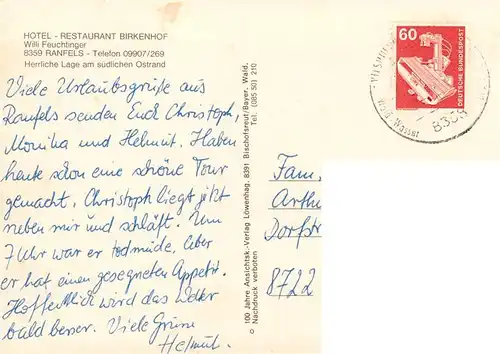 HOTEL - RESTAURANT BIRKENHOF
Willi Feuchtinger
8359 RANFELS - Telefon 09907/269
Herrliche Lage am südlichen Ostrand
Viele Urlaubsgrüße aus
Ranfels senden Euch Christoph,
Monika und Helmut. Haben
heute schon eine schöne Tour
gemacht. Christoph liegt jetzt
neben mir und schläft. Um
7 Uhr war er todmüde, aber
er hat einen gesegneten Appetit.
Hoffentlich wird das Wetter
bald besser. Viele Grüße
Helmut.
© 100 Jahre Ansichtsk.-Verlag Löwenhag, 8391 Bischofsreut/Bayer. Wald.
Nachdruck verboten Tel. (085 50) 210
60
DEUTSCHE BUNDESPOST
Wald-Wasser
8359
Fam.
Arthu
Dorfstr
8722